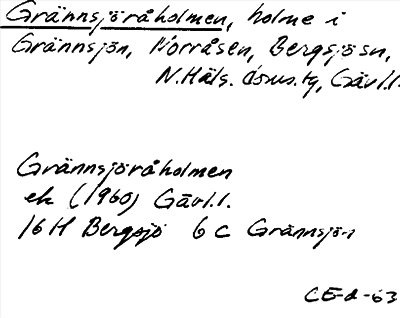 Grännsjöråholmen, holme i
Grännsjön, Norråsen, Bergsjö sn,
N. Häls. ö:sus. tg, Gävl.l.
Grännsjöråholmen
ek (1960) Gävl.l.
16 H Bergsjö 6 c Grännsjön
CE-d-63